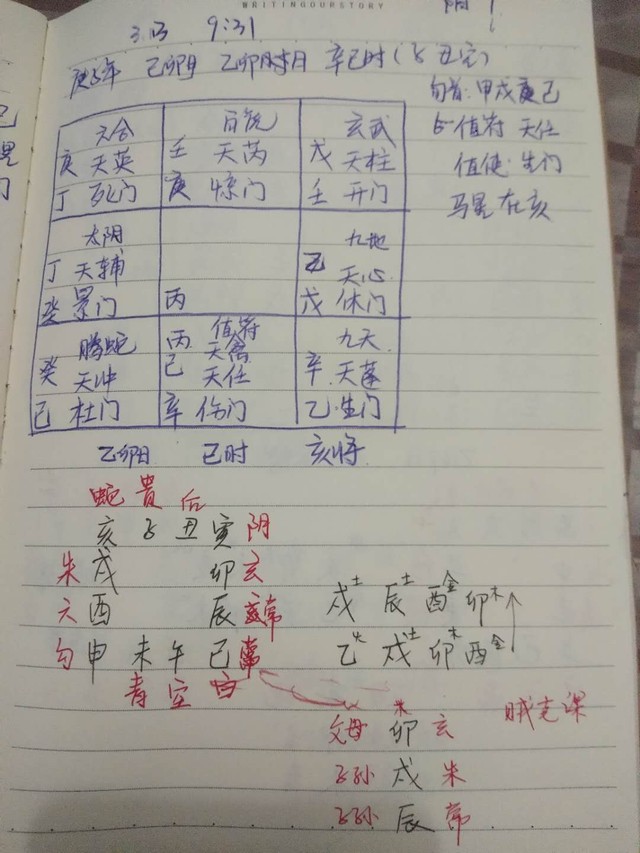 WRITINGOURSTORY
阴!
3.13 9:31
庚子年 己卯月 乙卯日 辛巳时(子丑空)
旬首:甲戌庚己
值符 天任
值使:生门
马星在亥
六合 白虎 玄武
庚 天英 壬 天芮 戊 天柱
丁 死门 庚 惊门 壬 开门
太阴 九地
丁 天辅 乙 天心
癸 景门 丙 戊 休门
螣蛇 丙 值符 九天
癸 天冲 己 天禽 天任 辛 天蓬
己 杜门 辛 伤门 乙 生门
乙卯日 巳时 亥将
蛇 贵 后
亥 子 丑 寅 阴
朱 戌 卯 玄
六 酉 辰 常
勾 申 未 午 巳
青 空 白
戌土 辰土 酉金 卯木
乙木 戌土 卯木 酉金
父母 卯木 玄 贼克课
子孙 戌 朱
子孙 辰 常